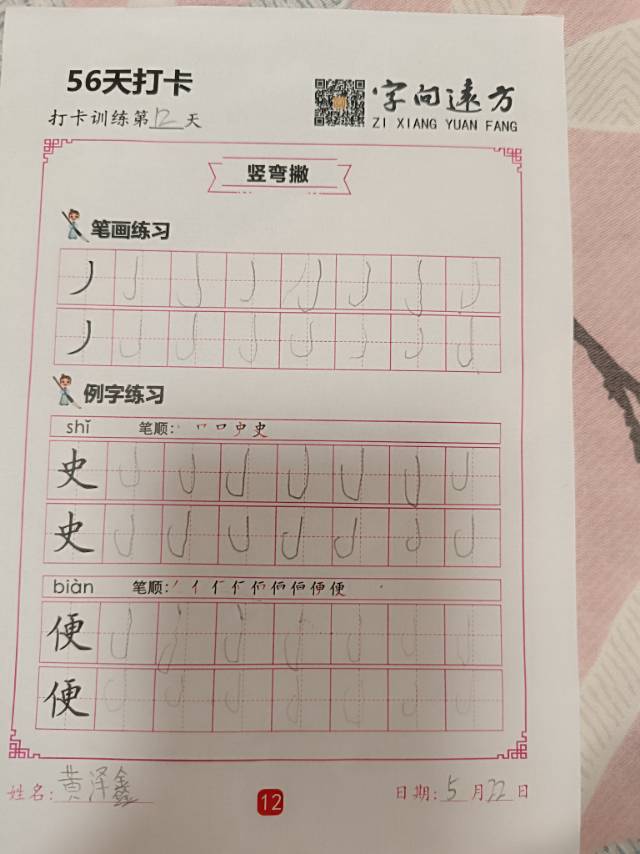 56天打卡
打卡训练第12天
字向远方
ZI XIANG YUAN FANG
竖弯撇
笔画练习
丿
丿
例字练习
shǐ 笔顺: 丨 冂 口 史 史
史
史
biàn 笔顺: 丿 亻 仁 何 佰 佰 佰 便 便
便
便
姓名: 黄泽鑫
12
日期: 5月22日